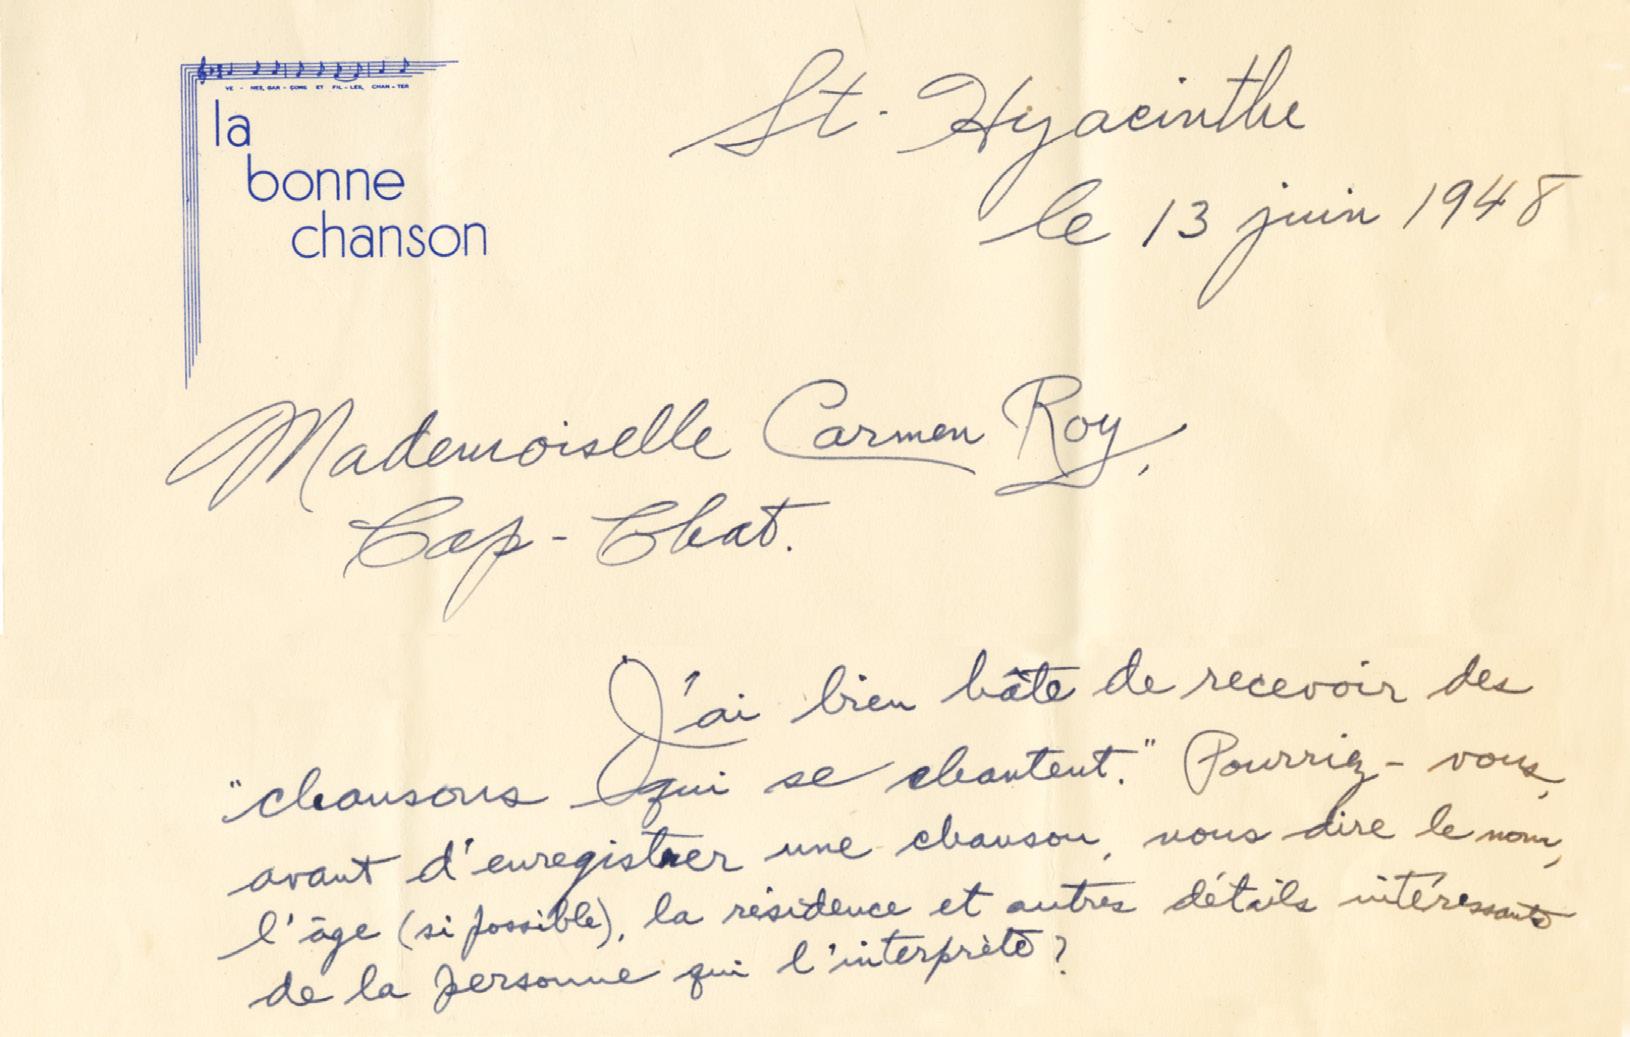 VE - NEZ, GAR - ÇONS ET FIL - LES, CHAN - TER
la
bonne
chanson
St-Hyacinthe
le 13 juin 1948
Mademoiselle Carmen Roy,
Cap-Chat.
J'ai bien hâte de recevoir des
"chansons qui se chantent." Pourriez-vous,
avant d'enregistrer une chanson, nous dire le nom,
l'âge (si possible), la résidence et autres détails intéressants
de la personne qui l'interprète?